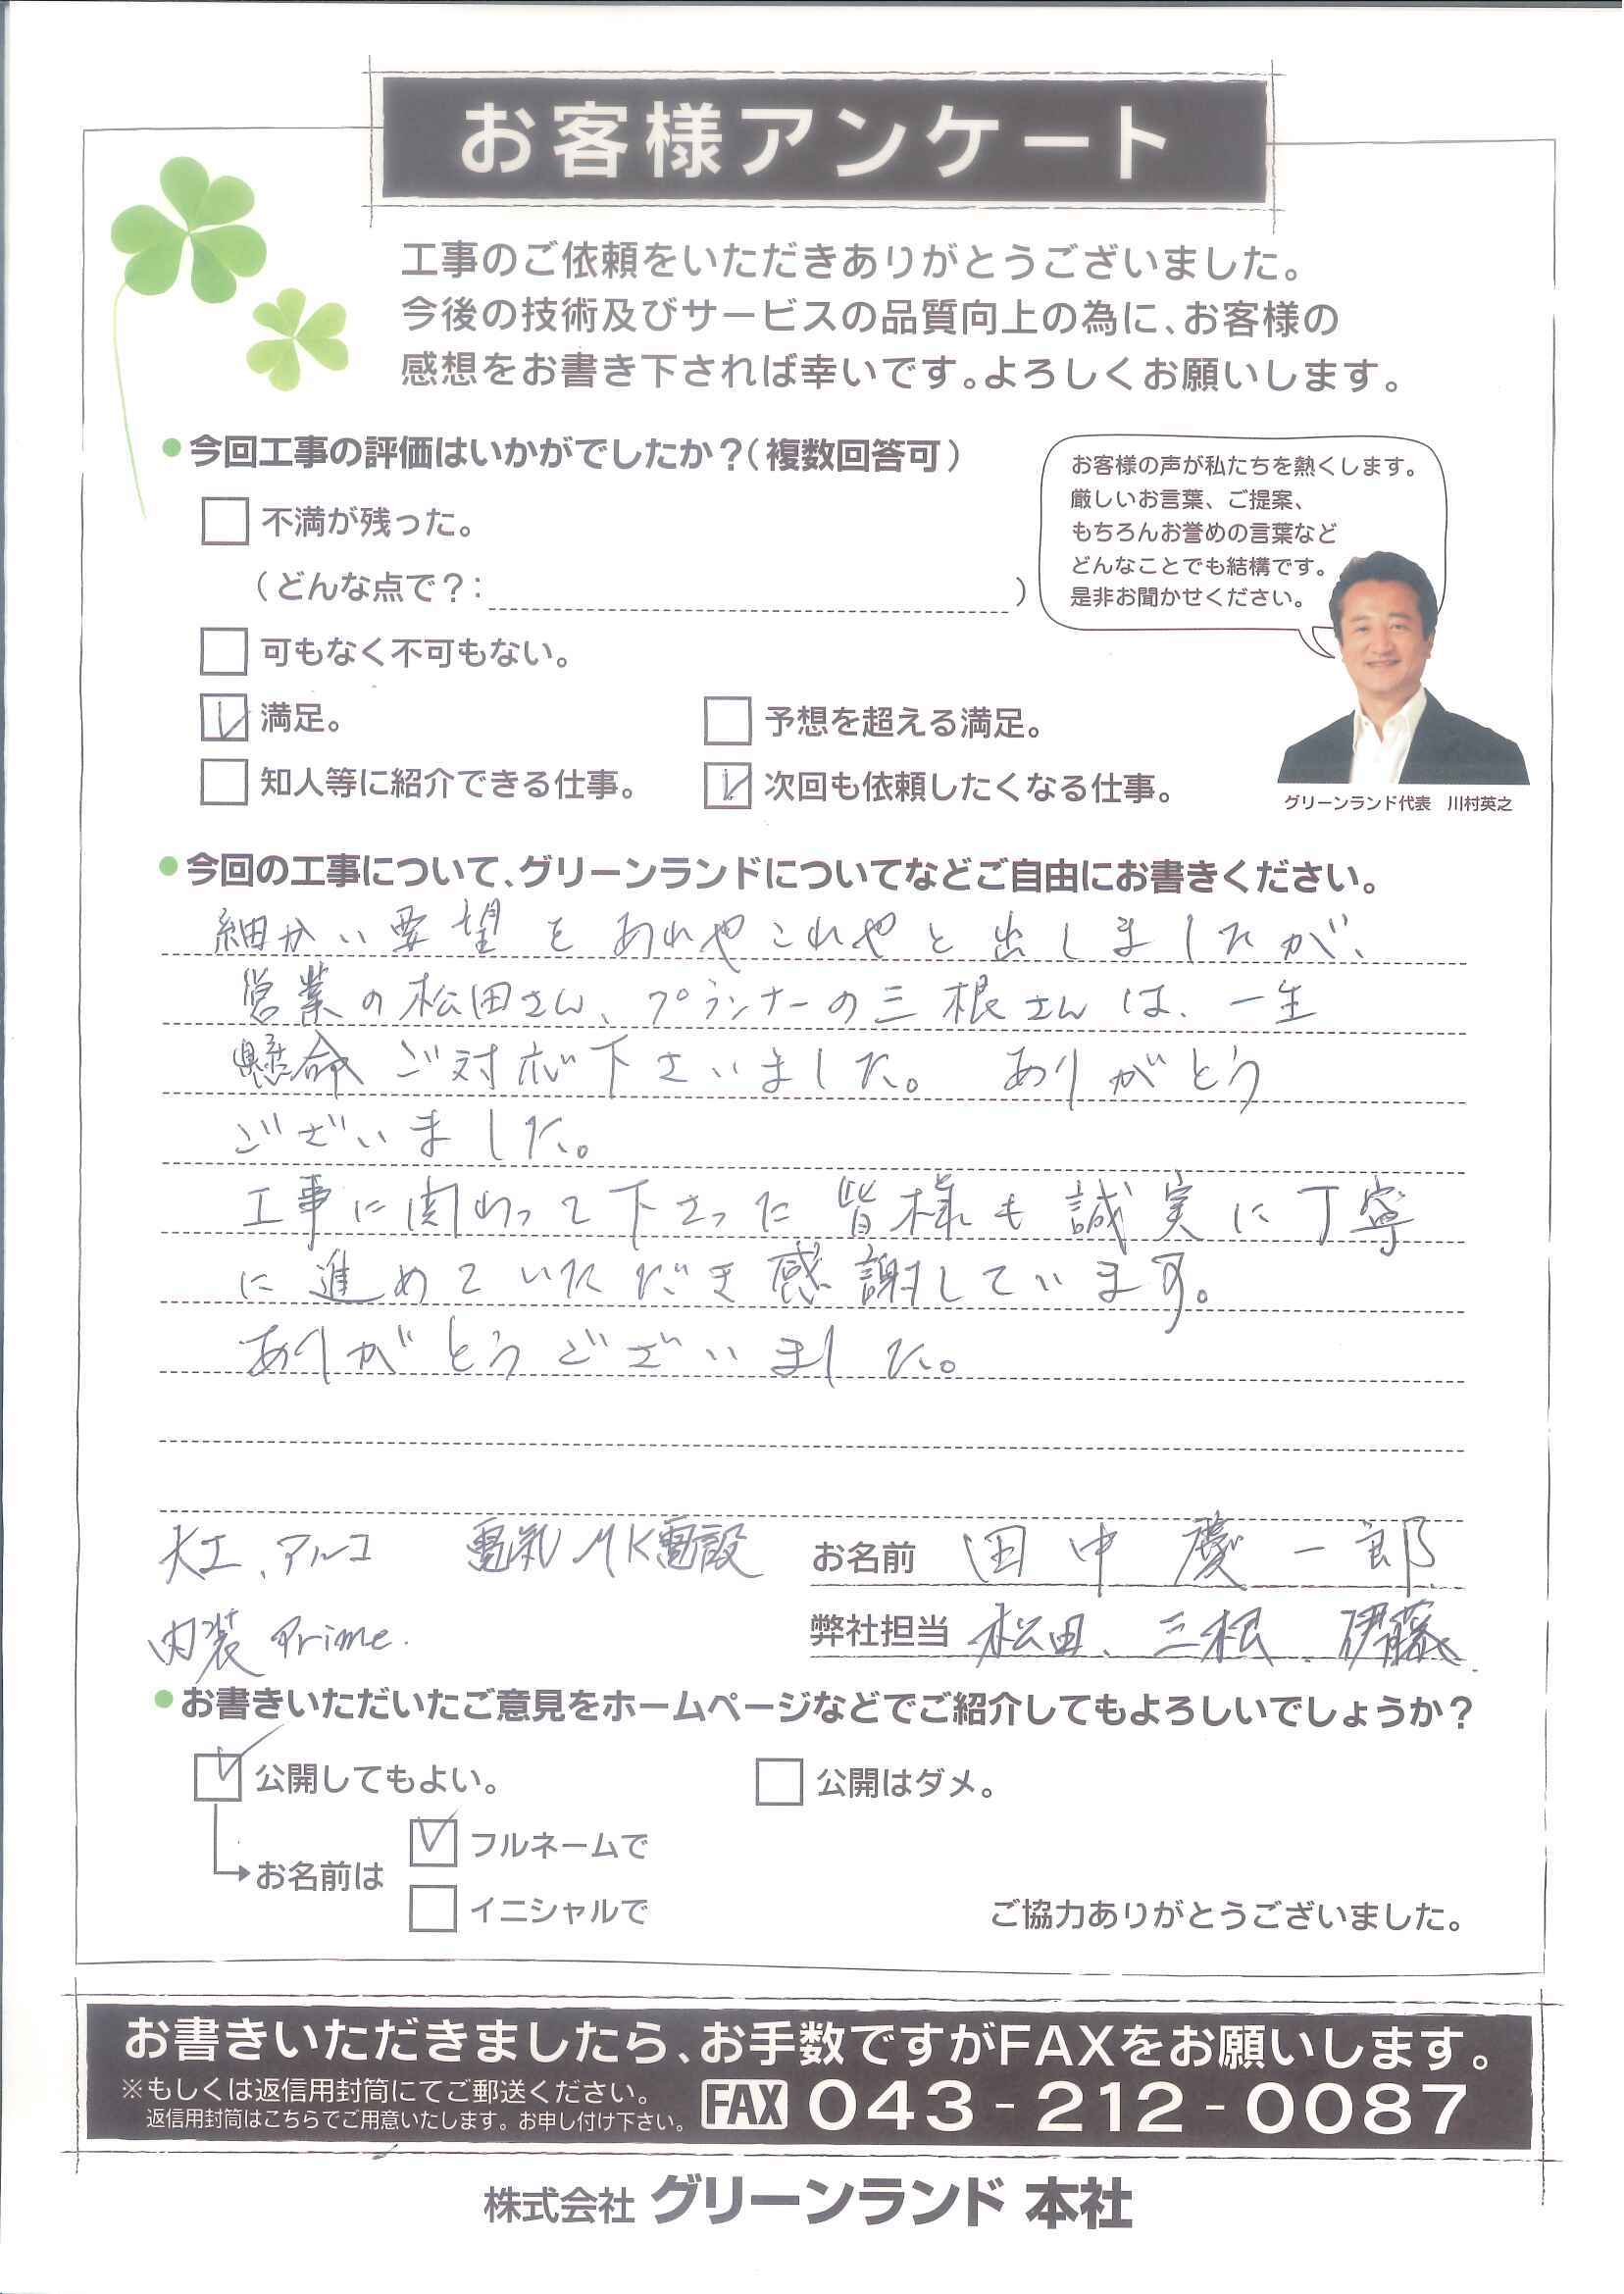 お客様アンケート
工事のご依頼をいただきありがとうございました。
今後の技術及びサービスの品質向上の為に、お客様の
感想をお書き下されば幸いです。よろしくお願いします。
●今回工事の評価はいかがでしたか?(複数回答可)
不満が残った。
(どんな点で?: )
可もなく不可もない。
満足。
予想を超える満足。
知人等に紹介できる仕事。
次回も依頼したくなる仕事。
お客様の声が私たちを熱くします。
厳しいお言葉、ご提案、
もちろんお誉めの言葉など
どんなことでも結構です。
是非お聞かせください。
グリーンランド代表 川村英之
●今回の工事について、グリーンランドについてなどご自由にお書きください。
細かい要望をあれやこれやと出しましたが、
営業の松田さん、プランナーの三根さんは、一生
懸命ご対応下さいました。ありがとう
ございました。
工事に関わって下さった皆様も誠実に丁寧
に進めていただき感謝しています。
ありがとうございました。
大工、アルコ 電気 MK電設
内装 Prime.
お名前 田中慶一郎
弊社担当 松田、三根、伊藤
●お書きいただいたご意見をホームページなどでご紹介してもよろしいでしょうか?
公開してもよい。
公開はダメ。
お名前は
フルネームで
イニシャルで
ご協力ありがとうございました。
お書きいただきましたら、お手数ですがFAXをお願いします。
※もしくは返信用封筒にてご郵送ください。
返信用封筒はこちらでご用意いたします。お申し付け下さい。
FAX 043-212-0087
株式会社 グリーンランド 本社